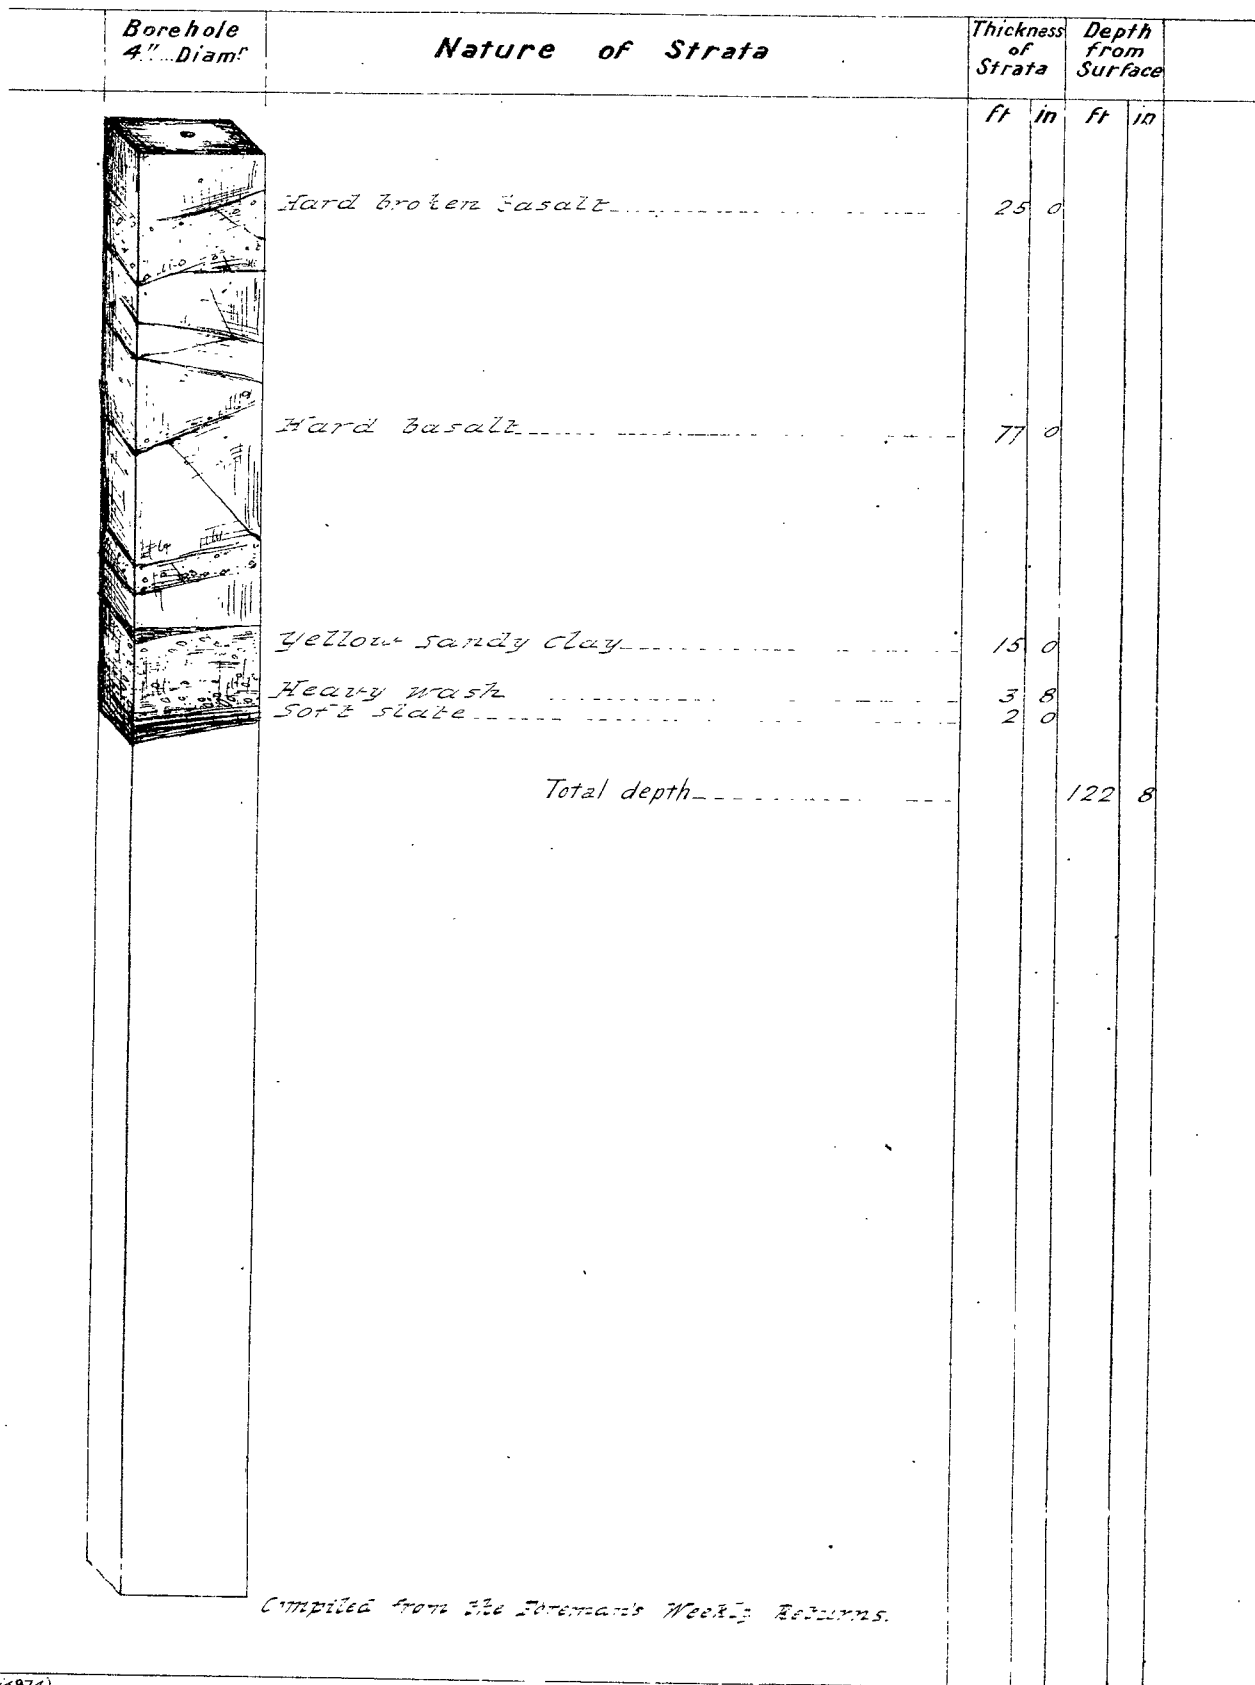 Borehole
4"...Diamr
Nature of Strata
Thickness
of
Strata
Depth
from
Surface
ft in ft in
Hard broken Basalt 25 0
Hard basalt 77 0
Yellow sandy clay 15 0
Heavy wash 3 8
Soft slate 2 0
Total depth 122 8
Compiled from the Foreman's Weekly Returns.